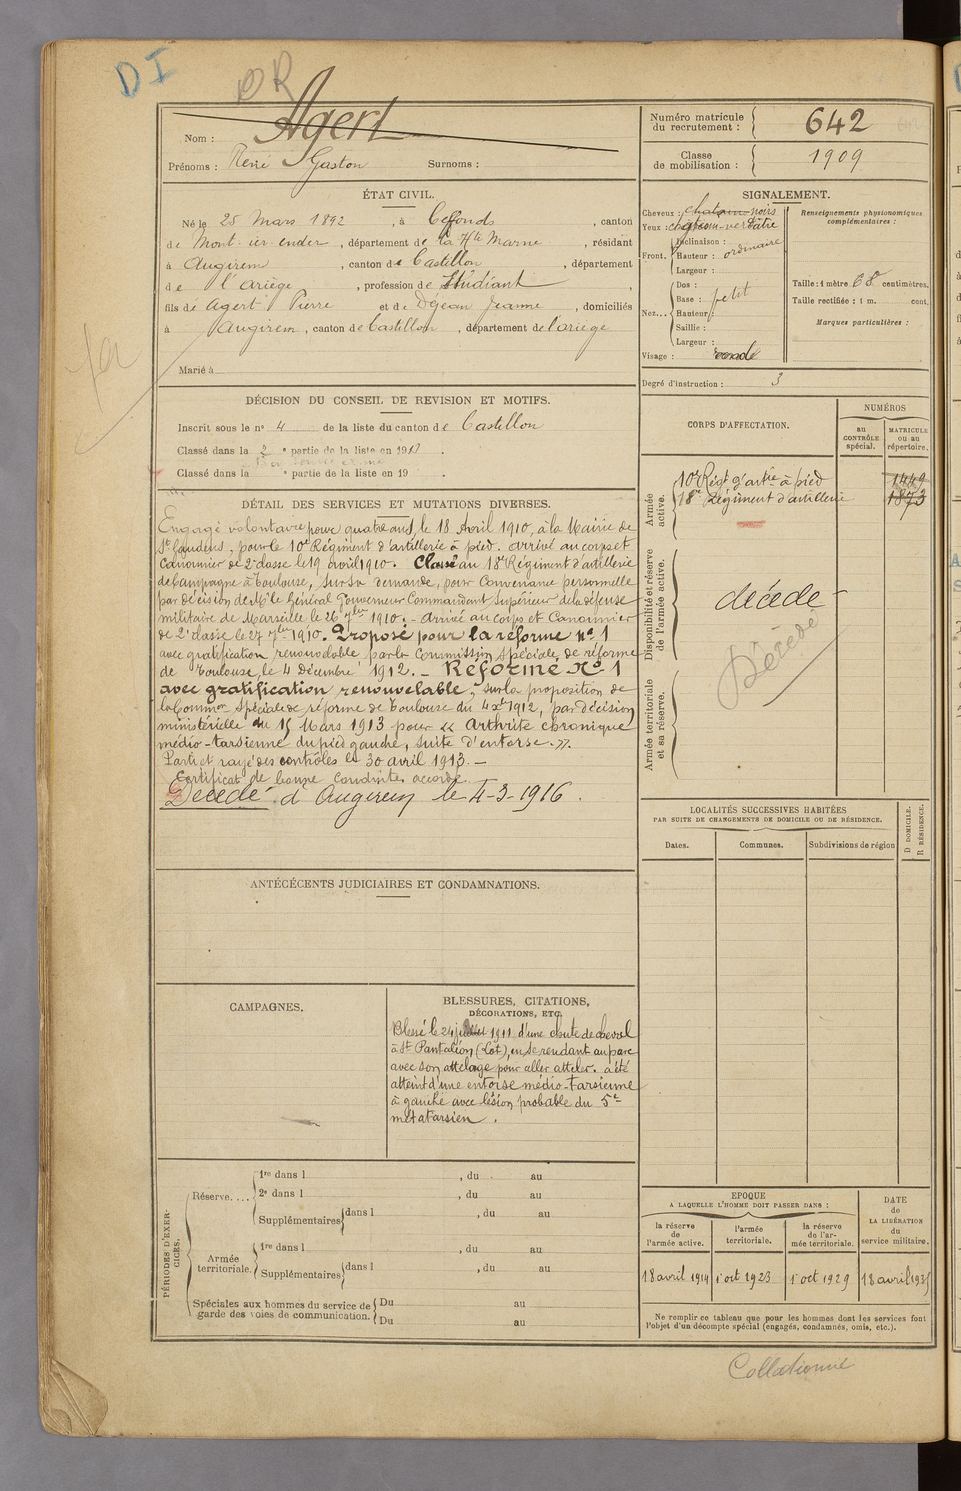 DI
DR
Nom : Agert
Prénoms : René Gaston Surnoms :
Numéro matricule
du recrutement : 642
Classe
de mobilisation : 1909
ÉTAT CIVIL.
Né le 25 Mars 1892, à Ceffonds, canton
de Mont-ier-ender, département de la Hte Marne, résidant
à Augirein, canton de Castillon, département
de l'ariège, profession de Etudiant,
fils de Agert Pierre et de Dejean Jeanne, domiciliés
à Augirein, canton de Castillon, département de l'ariège
Marié à
SIGNALEMENT.
Cheveux : chatains noirs
Yeux : verdâtre
Front. Inclinaison :
Hauteur : ordinaire
Largeur :
Nez... Dos :
Base : petit
Hauteur :
Saillie :
Largeur :
Visage : ronde
Renseignements physionomiques
complémentaires :
Taille : 1 mètre 68 centimètres.
Taille rectifiée : 1 m. cent.
Marques particulières :
Degré d'instruction : 3
DÉCISION DU CONSEIL DE REVISION ET MOTIFS.
Inscrit sous le no 4 de la liste du canton de Castillon
Classé dans la 2e partie de la liste en 191
Classé dans la e partie de la liste en 19
DÉTAIL DES SERVICES ET MUTATIONS DIVERSES.
Engagé volontaire pour quatre ans, le 18 Avril 1910, à la Mairie de
St Gaudens, pour le 10e Régiment d'artillerie à pied. arrivé au corps et
Canonnier de 2e classe le 19 avril 1910. Classé au 18e Régiment d'artillerie
de Campagne à Toulouse, sur sa demande, pour Convenance personnelle
par décision de Mr le Général Gouverneur Commandant Supérieur de la défense
militaire de Marseille le 26 7bre 1910. - Arrivé au corps et Canonnier
de 2e classe le 27 7bre 1910. Proposé pour la réforme no 1
avec gratification renouvelable par la Commission Spéciale de réforme
de Toulouse, le 4 Décembre 1912. - Réformé No 1
avec gratification renouvelable, sur la proposition de
la Common Spéciale de réforme de Toulouse du 4 Xbre 1912, par décision
ministérielle du 15 Mars 1913 pour « Arthrite chronique
médio-tarsienne du pied gauche, suite d'entorse ».
Parti et rayé des contrôles le 30 avril 1913. -
Certificat de bonne conduite accordé.
Décédé à Augirein le 4-3-1916.
CORPS D'AFFECTATION.
NUMÉROS
au
CONTRÔLE
spécial.
MATRICULE
ou au
répertoire.
Armée
active.
10e Régt d'artie à pied 1449
18e Régiment d'artillerie 1873
Disponibilité et réserve
de l'armée active.
décédé
Décédé
Armée territoriale
et sa réserve.
LOCALITÉS SUCCESSIVES HABITÉES
PAR SUITE DE CHANGEMENTS DE DOMICILE OU DE RÉSIDENCE.
Dates. Communes. Subdivisions de région
D DOMICILE.
R RÉSIDENCE.
ANTÉCÉCENTS JUDICIAIRES ET CONDAMNATIONS.
CAMPAGNES.
BLESSURES, CITATIONS,
DÉCORATIONS, ETC.
Blessé le 24 juillet 1911 d'une chute de cheval
à St Pantaléon (Lot), en se rendant au parc
avec son attelage pour aller atteler. a été
atteint d'une entorse médio-tarsienne
à gauche avec lésion probable du 5e
métatarsien.
PÉRIODES D'EXERCICES.
Réserve.... 1re dans l , du au
2e dans l , du au
Supplémentaires dans l , du au
Armée
territoriale. 1re dans l , du au
Supplémentaires dans l , du au
Spéciales aux hommes du service de
garde des voies de communication. Du au
Du au
EPOQUE
A LAQUELLE L'HOMME DOIT PASSER DANS :
la réserve
de
l'armée active.
l'armée
territoriale.
la réserve
de l'ar-
mée territoriale.
DATE
de
LA LIBÉRATION
du
service militaire.
18 avril 1914 1er oct 1923 1er oct 1929 18 avril 1935
Ne remplir ce tableau que pour les hommes dont les services font
l'objet d'un décompte spécial (engagés, condamnés, omis, etc.).
Collationné